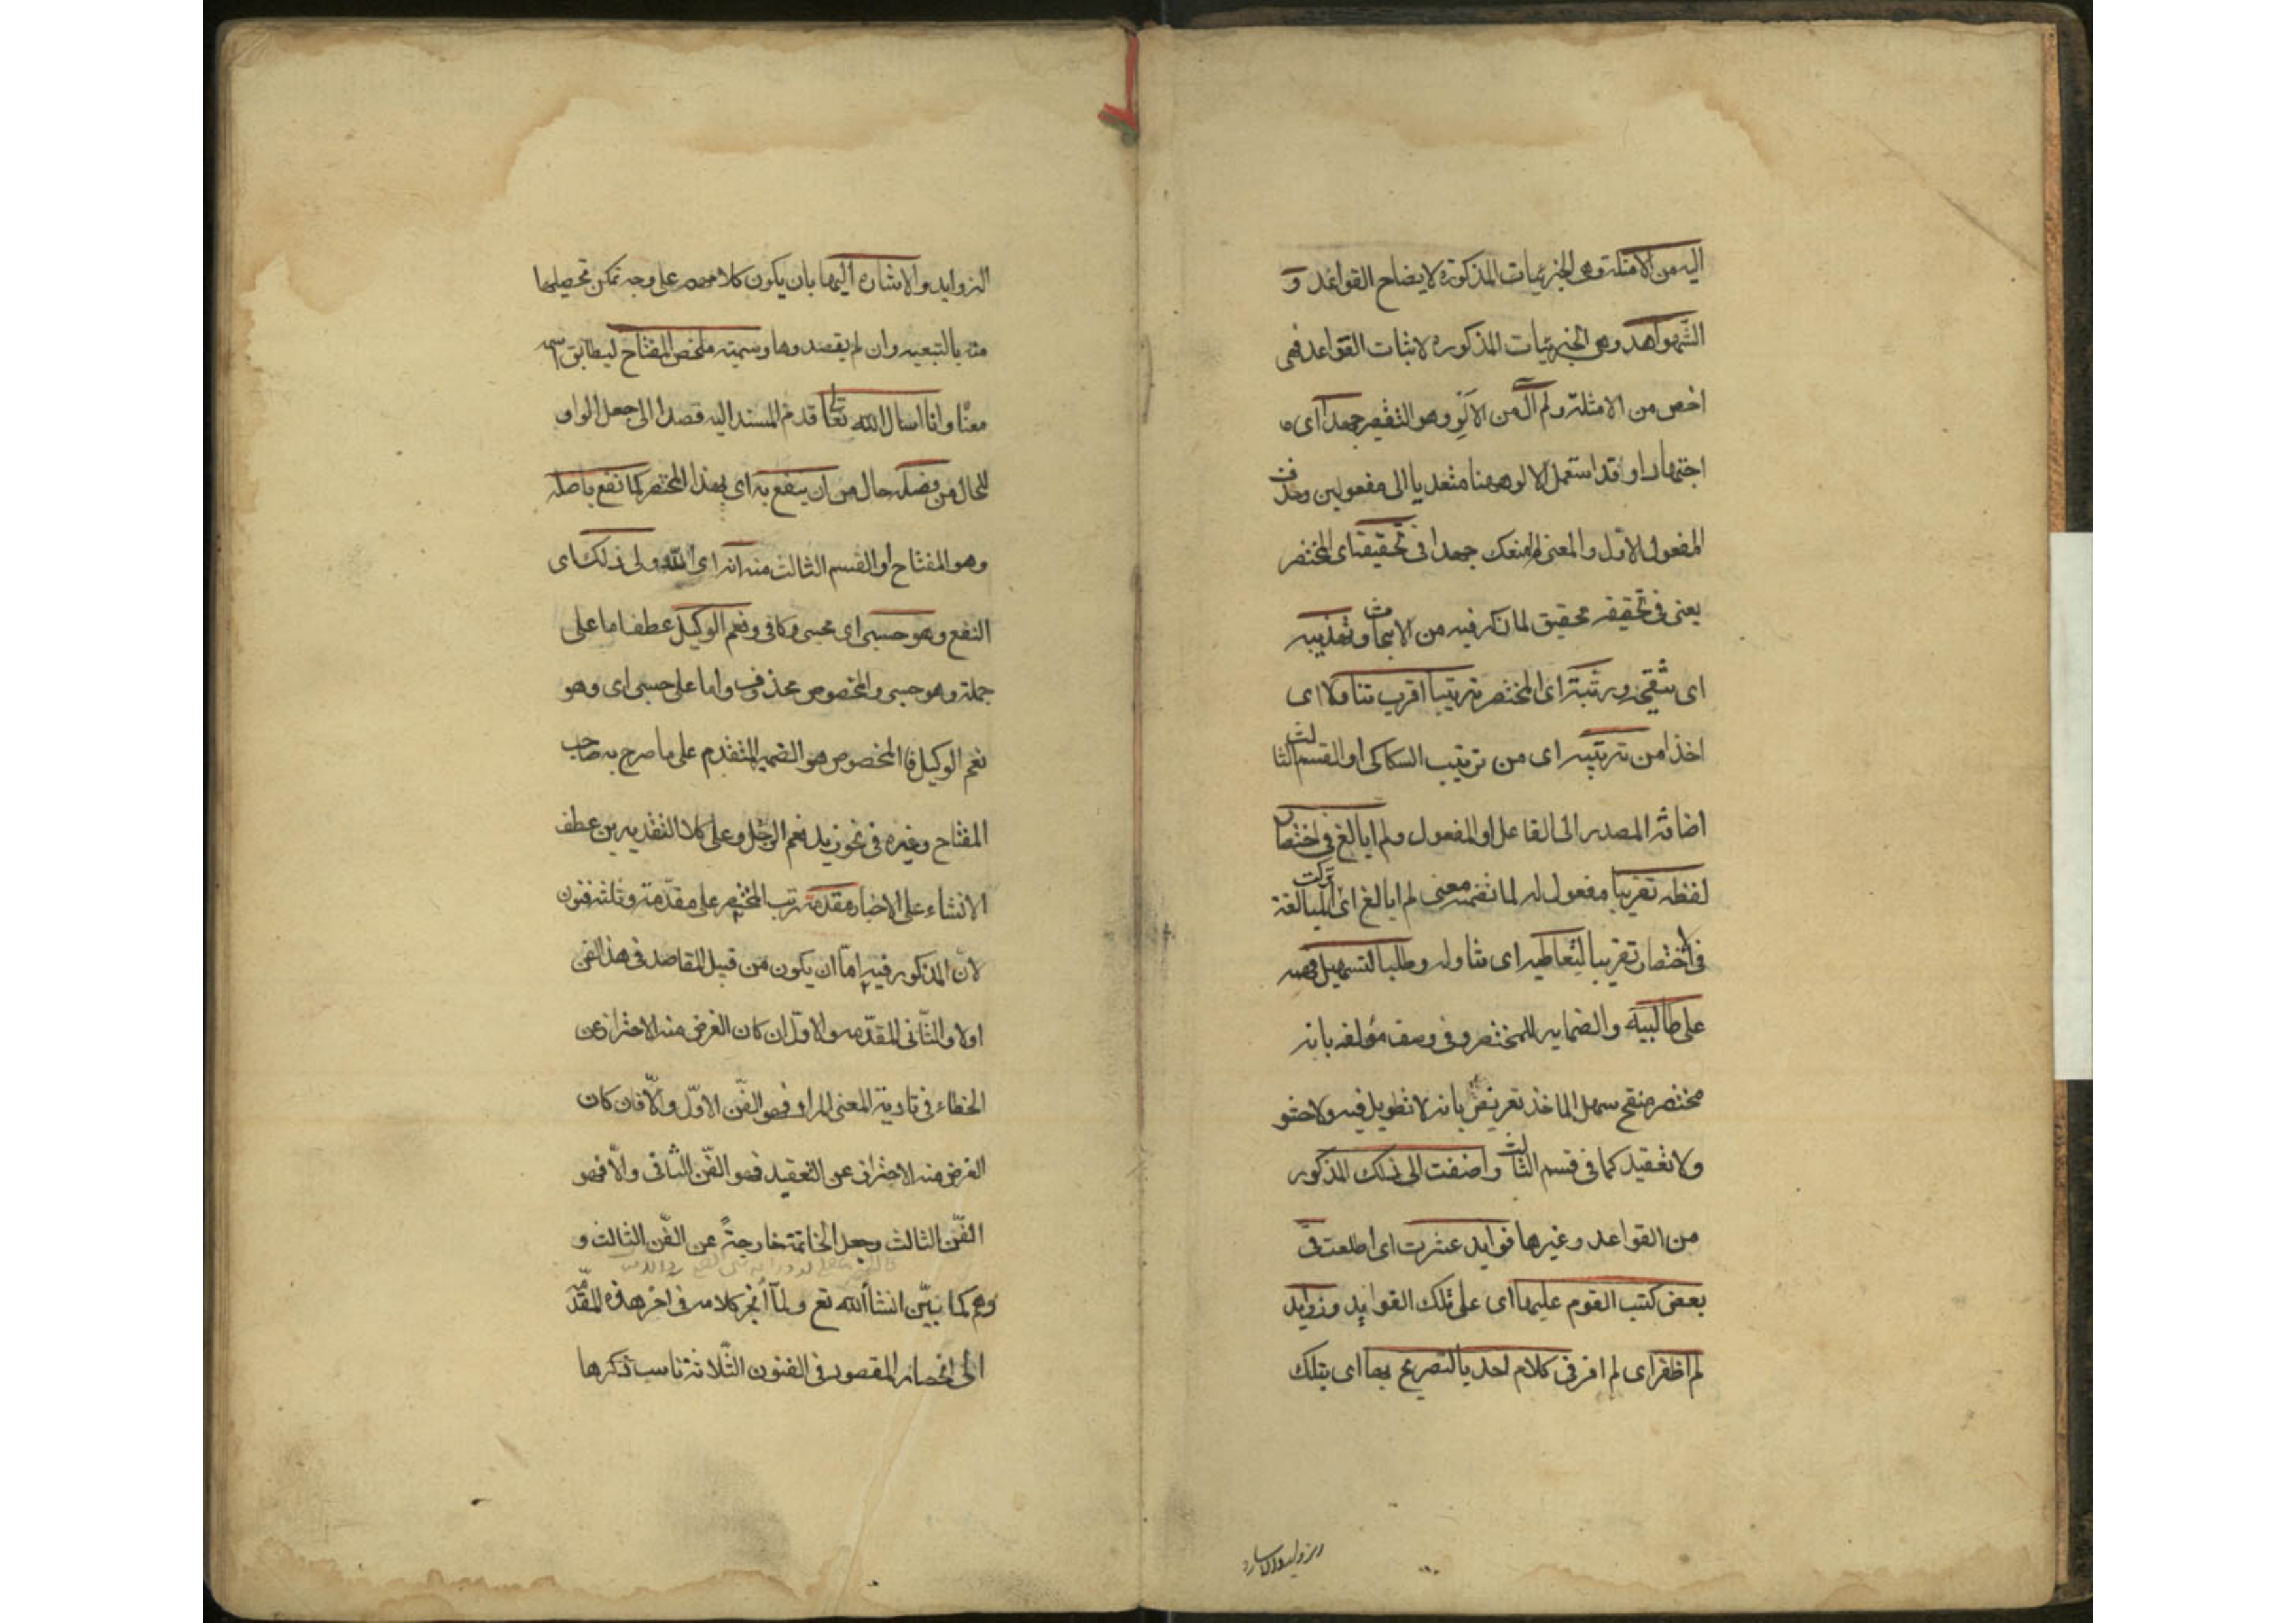 اليه من الامثلة وهى الجزئيات المذكورة لايضاح القواعد و
الشواهد وهى الجزئيات المذكوره لاثبات القواعد فهى
اخص من الامثلة ولم آل من الالو وهو التقصير جهدا اى
اجتهادا وقد استعمل الالو ههنا متعديا الى مفعولين وحذف
المفعول الاول والمعنى لم امنعك جهدا فى تحقيقه اى المختصر
يعنى فى تحقيقه تحقيق لما ذكر فيه من الابحاث وتهذيبه
اى تنقيحه ورتبته اى المختصر ترتيبا اقرب تناولا اى
اخذا من ترتيبه اى من ترتيب السكاكى او القسم الثالث
اضافة المصدر الى الفاعل او المفعول ولم ابالغ فى اختصار
لفظه تقريبا مفعول له لما تضمنه معنى لم ابالغ اى تركت المبالغة
فى الاختصار تقريبا لتعاطيه اى تناوله وطلبا لتسهيل فهمه
على طالبيه والضماير للمختصر وفى وصف مؤلفه بانه
مختصر منقح سهل الماخذ تعريض بانه لا تطويل فيه ولا حشو
ولا تعقيد كما فى قسم الثالث واضفت الى ذلك المذكور
من القواعد وغيرها فوايد عثرت اى اطلعت فى
بعض كتب القوم عليها اى على تلك الفوايد وزوايد
لم اظفر اى لم افز فى كلام احد بالتصريح بها اى بتلك
الزوايد والاشارة اليها بان يكون كلامهم على وجه تمكن تحصيلها
منه بالتبعيه وان لم يقصدوها وسميته ملخص المفتاح ليطابق اسمه
معناه وانا اسال الله تعالى قدم المسند اليه قصدا الى جعل الواو
للحال من فضله حال من ان ينفع به اى بهذا المختصر كما نفع باصله
وهو المفتاح او القسم الثالث منه انه اى الله ولى ذلك اى
النفع وهو حسبى اى محسبى وكافى ونعم الوكيل عطف اما على
جملة وهو حسبى والمخصوص محذوف واما على حسبى اى وهو
نعم الوكيل فالمخصوص هو الضمير المتقدم على ما صرح به صاحب
المفتاح وغيره فى نحو زيد نعم الرجل وعلى كلا التقديرين عطف
الانشاء على الاخبار مقدمة رتب المختصر على مقدمة وثلثه فنون
لان المذكور فيه اما ان يكون من قبيل المقاصد فى هذا الفن
اولا والثانى المقدمه والاول ان كان الغرض منه الاحتراز عن
الخطاء فى تادية المعنى المراد فهو الفن الاول والا فان كان
الغرض منه الاحتراز عن التعقيد فهو الفن الثانى والا فهو
الفن الثالث وجعل الخاتمة خارجة عن الفن الثالث و
وهم كما نبين انشأ الله تع ولما انجر كلامه فى اخر هذه المقدمه
الى انحصار المقصود فى الفنون الثلاثة ناسب ذكرها